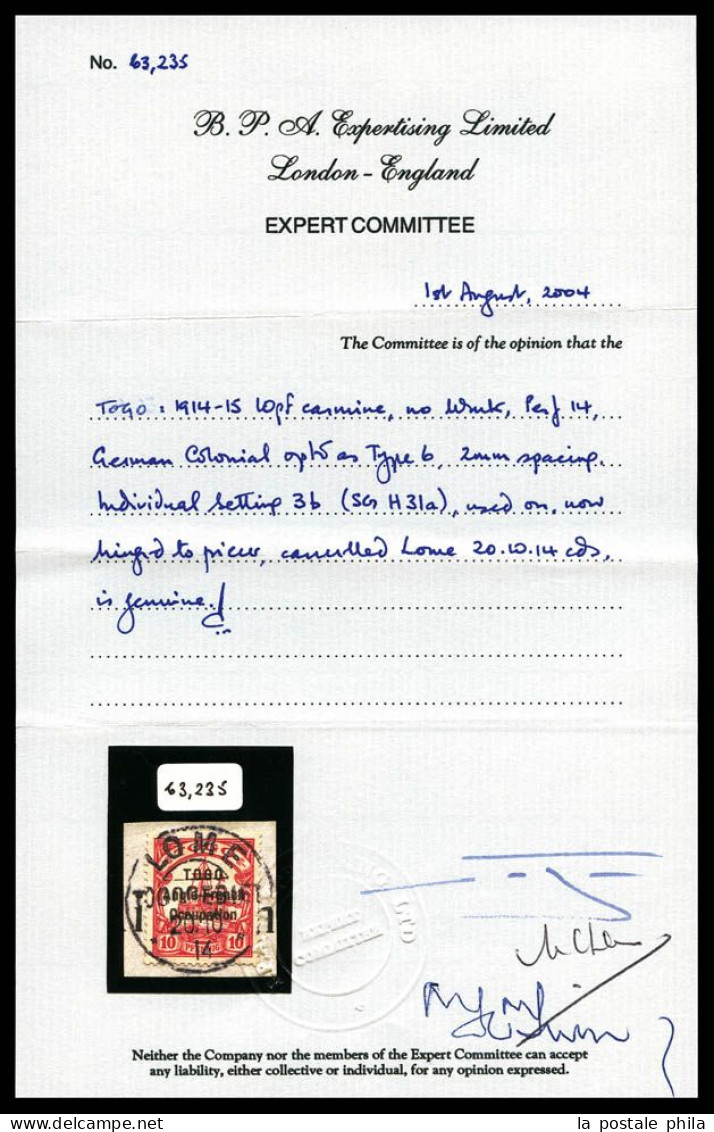 No. 63,235
B. P. A. Expertising Limited
London - England
EXPERT COMMITTEE
1st August, 2004
The Committee is of the opinion that the
TOGO : 1914-15 10pf carmine, no Wmk, Perf 14,
German Colonial optd as Type 6, 2mm spacing.
Individual Setting 3b (SG H31a), used on, now
hinged to piece, cancelled Lome 20.10.14 cds,
is genuine.
63,235
LOME
TOGO
Anglo-French
Occupation
20.10
10 PFENNIG 10
14
Neither the Company nor the members of the Expert Committee can accept
any liability, either collective or individual, for any opinion expressed.
la postale phila